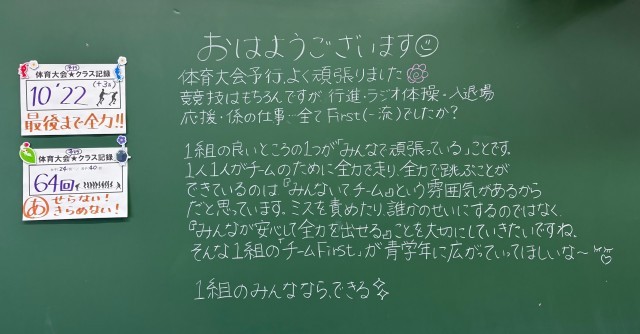 おはようございます
体育大会予行、よく頑張りました
競技はもちろんですが、行進・ラジオ体操・入退場
応援・係の仕事…全てFirst(一流)でしたか?
1組の良いところの1つが「みんなで頑張っている」ことです。
1人1人がチームのために全力で走り、全力で跳ぶことが
できているのは『みんないてチーム』という雰囲気があるから
だと思っています。ミスを責めたり、誰かのせいにするのではなく、
『みんなが安心して全力を出せる』ことを大切にしていきたいですね。
そんな1組の「チームFirst」が青学年に広がっていってほしいな〜
1組のみんななら、できる
予行
体育大会★クラス記録
10'22
最後まで全力!!
予行
体育大会★クラス記録
64回
あ せらない!
きらめない!